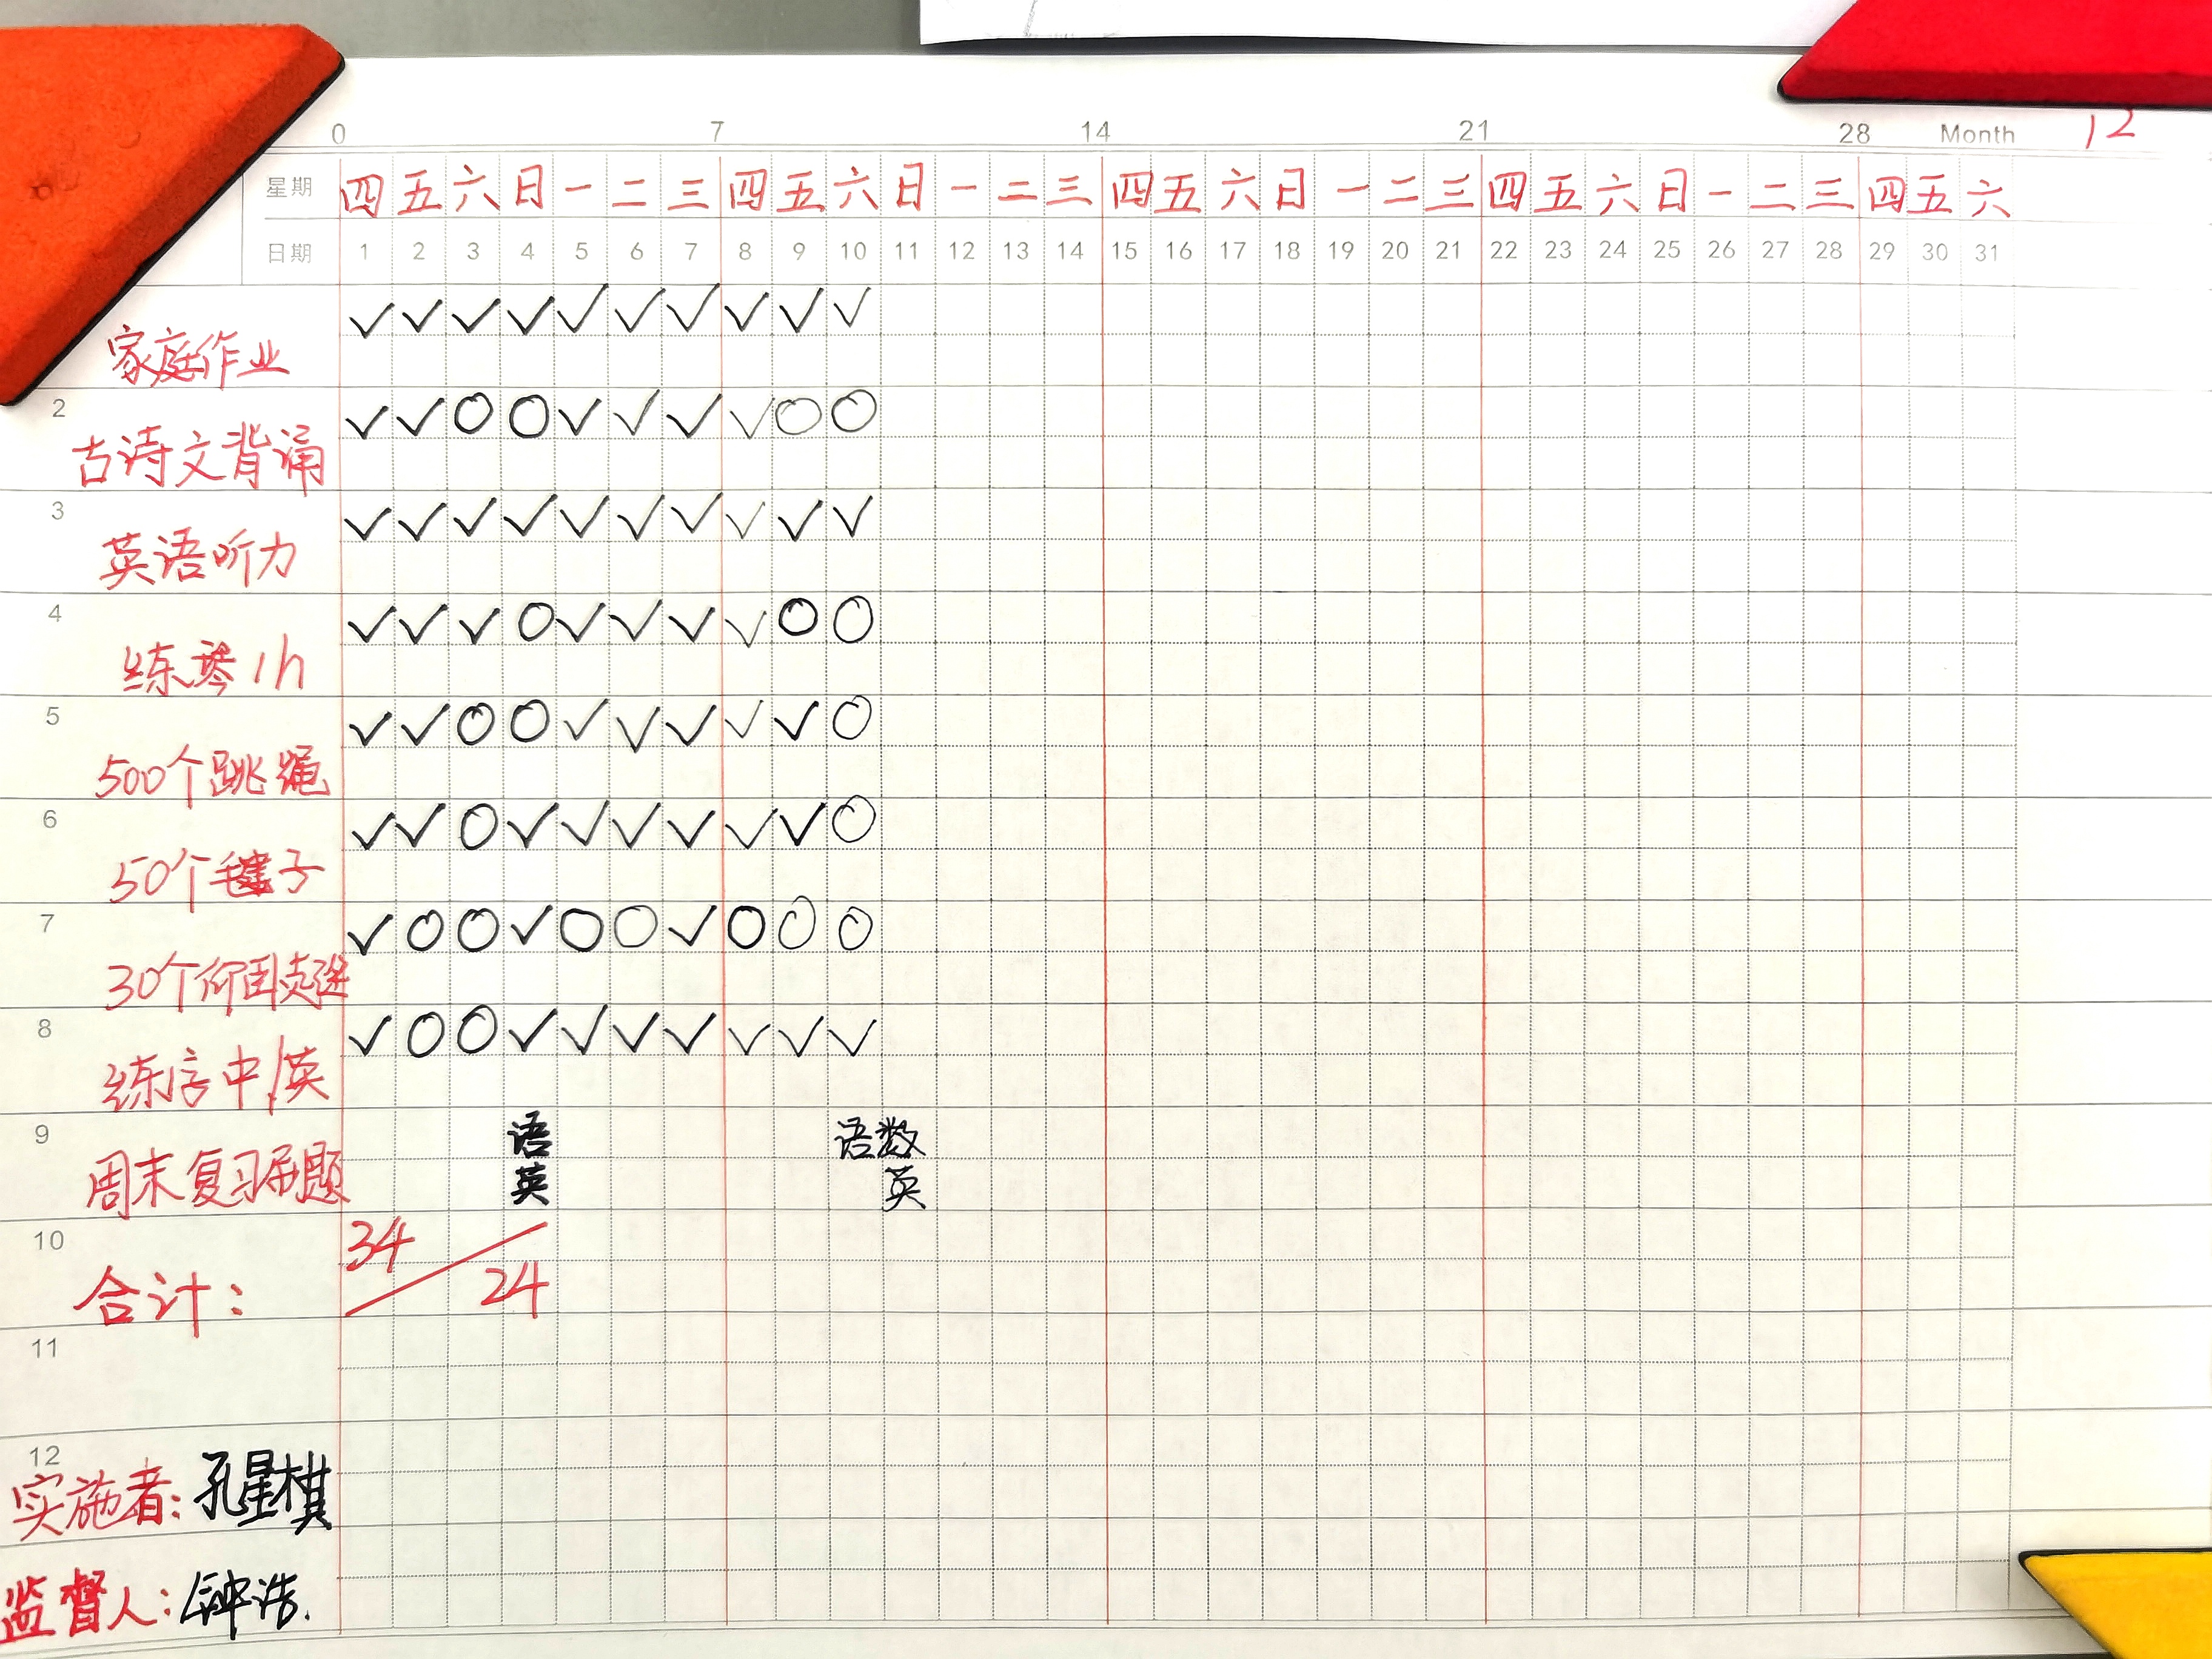 0 7 14 21 28 Month 12
星期 四 五 六 日 一 二 三 四 五 六 日 一 二 三 四 五 六 日 一 二 三 四 五 六 日 一 二 三 四 五 六
日期 1 2 3 4 5 6 7 8 9 10 11 12 13 14 15 16 17 18 19 20 21 22 23 24 25 26 27 28 29 30 31
家庭作业 ✓ ✓ ✓ ✓ ✓ ✓ ✓ ✓ ✓ ✓
2 古诗文背诵 ✓ ✓ ○ ○ ✓ ✓ ✓ ✓ ○ ○
3 英语听力 ✓ ✓ ✓ ✓ ✓ ✓ ✓ ✓ ✓ ✓
4 练琴1h ✓ ✓ ✓ ○ ✓ ✓ ✓ ✓ ○ ○
5 500个跳绳 ✓ ✓ ○ ○ ✓ ✓ ✓ ✓ ✓ ○
6 50个毽子 ✓ ✓ ○ ✓ ✓ ✓ ✓ ✓ ✓ ○
7 30个仰卧起坐 ✓ ○ ○ ✓ ○ ○ ✓ ○ ○ ○
8 练字中/英 ✓ ○ ○ ✓ ✓ ✓ ✓ ✓ ✓ ✓
9 周末复习刷题 语 语 数
英 英
10 合计: 34/24
11
12
实施者: 孔星棋
监督人: 钟浩.